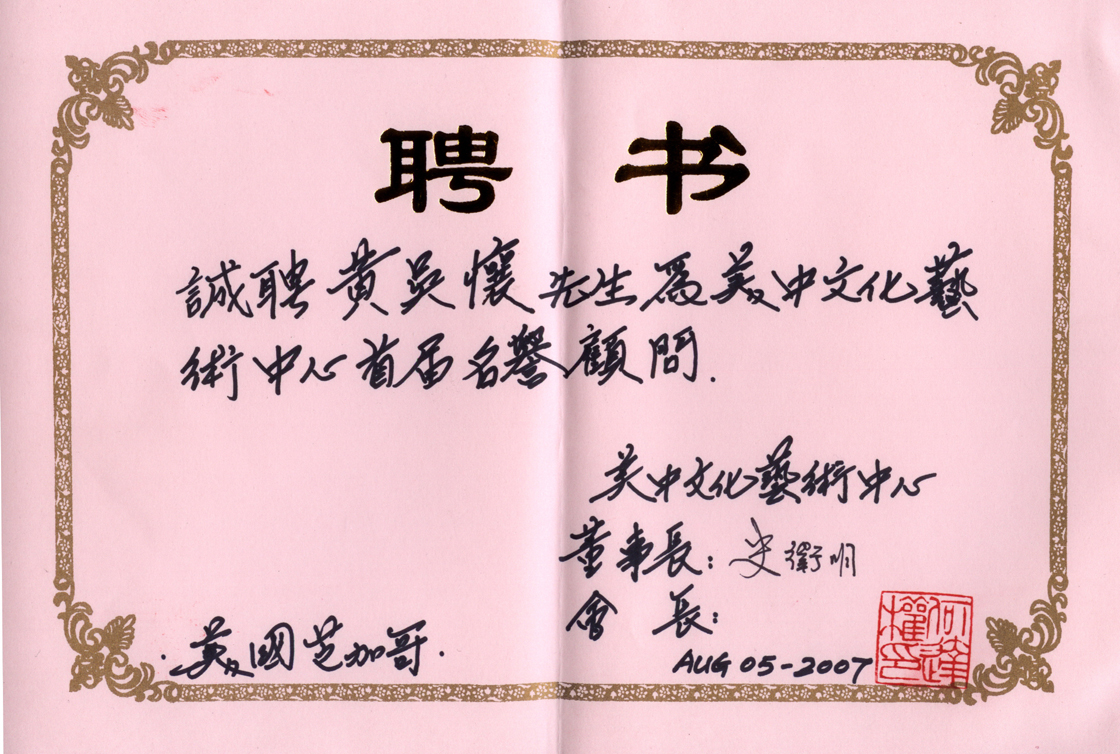 聘书
誠聘黄吳懷先生為美中文化藝
術中心首届名譽顧問.
美中文化藝術中心
董事長：史衛明
會 長：
美國芝加哥.
AUG 05-2007
何達權印